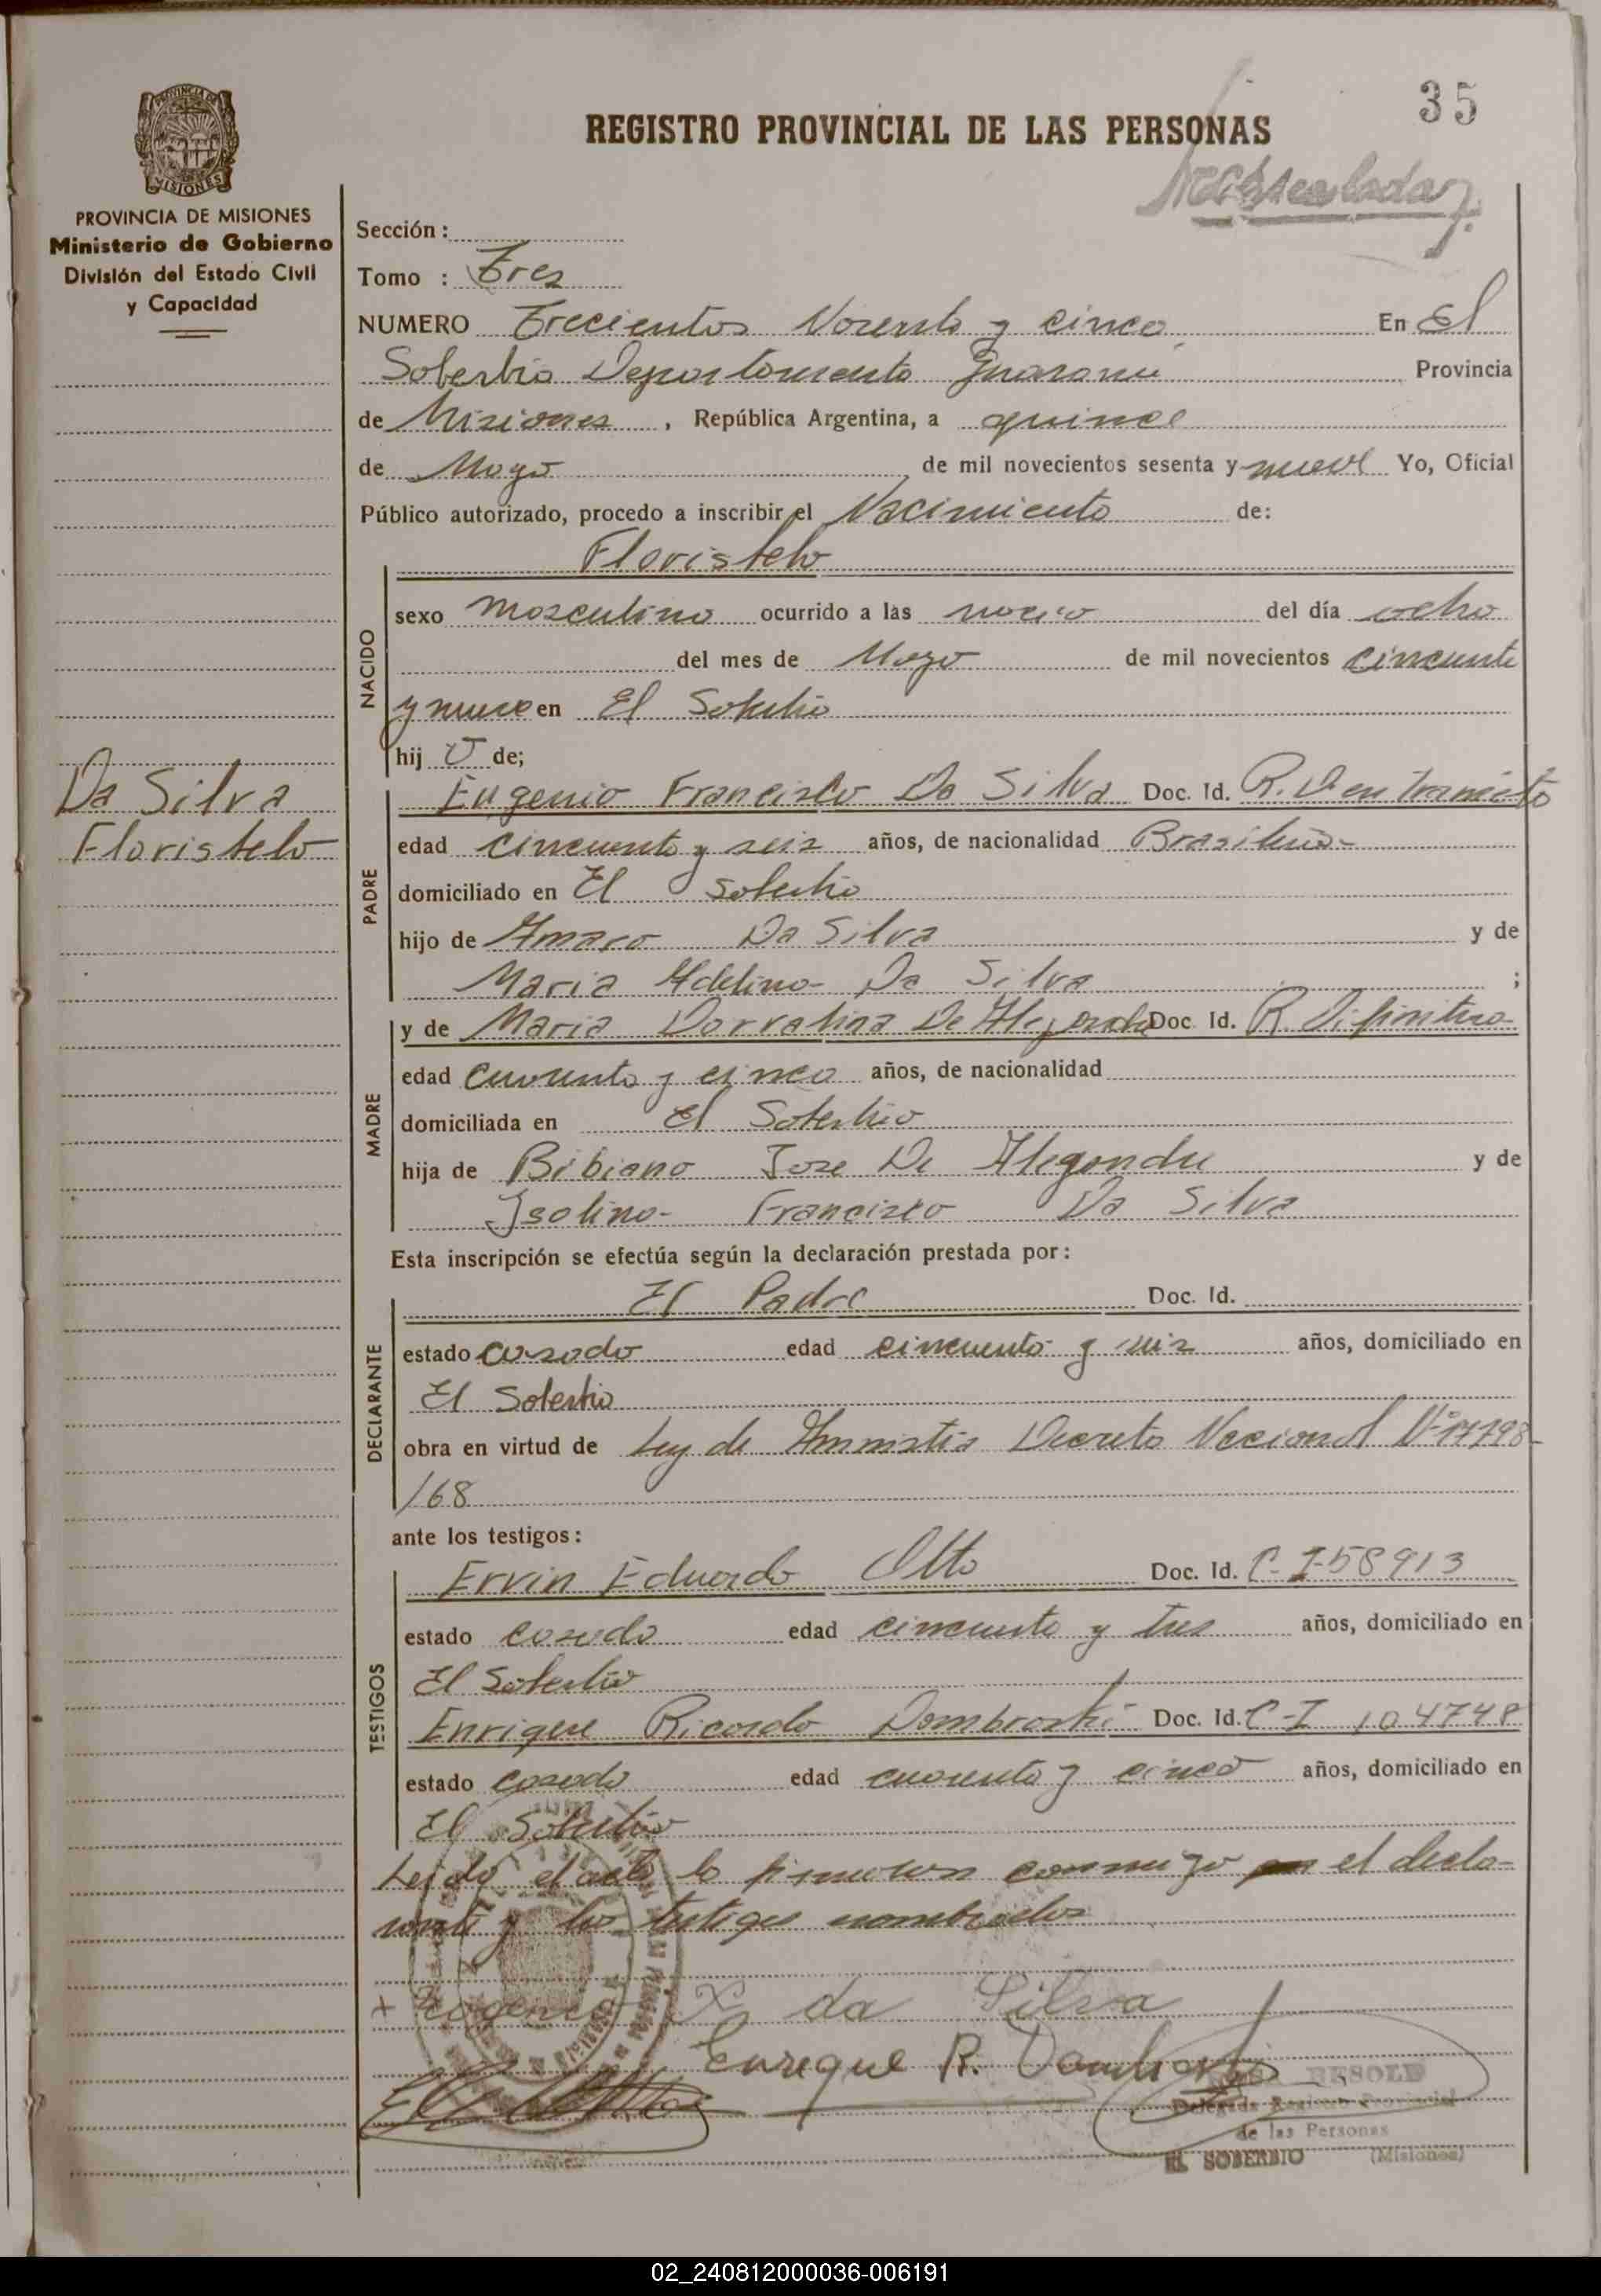 35
REGISTRO PROVINCIAL DE LAS PERSONAS
PROVINCIA DE MISIONES
Ministerio de Gobierno
División del Estado Civil
y Capacidad
Sección:
Tomo : Tres
NUMERO Trecientos Noventa y cinco En El
Soberbio Departamento Guarani Provincia
de Misiones , República Argentina, a quince
de Mayo de mil novecientos sesenta y nueve Yo, Oficial
Público autorizado, procedo a inscribir el Nacimiento de:
NACIDO
Floristelo
sexo masculino ocurrido a las del día ocho
del mes de Mayo de mil novecientos cincuenta
y nueve en El Soberbio
hij o de;
Da Silva
Floristelo
PADRE
Eugenio Francisco Da Silva Doc. Id. R. D en tramite
edad cincuenta y seis años, de nacionalidad Brasileña-
domiciliado en El Soberbio
hijo de Amaro Da Silva y de
Maria Adelina Da Silva ;
MADRE
y de Maria Dorvalina De Doc. Id. R. Difinitiva
edad cuarenta y cinco años, de nacionalidad
domiciliada en El Soberbio
hija de Bibiano Jose De y de
Isolina Francisco Da Silva
Esta inscripción se efectúa según la declaración prestada por:
DECLARANTE
El Padre Doc. Id.
estado casado edad cincuenta y seis años, domiciliado en
El Soberbio
obra en virtud de Ley de Amnistia Decreto Nacional Nº 17798-
/68
ante los testigos:
TESTIGOS
Ervin Eduardo Otto Doc. Id. C-I-58913
estado casado edad cincuenta y tres años, domiciliado en
El Soberbio
Enrique Ricardo Dombroski Doc. Id. C-I 104748
estado casado edad cuarenta y cinco años, domiciliado en
El Soberbio
Leido el acta lo firmaron conmigo el decla-
rante y los testigos nombrados
+ Eogenio X da Silva
Enrique R. Dombroski
BESOLD
Delegado Registro Provincial
de las Personas
EL SOBERBIO (Misiones)
02_240812000036-006191